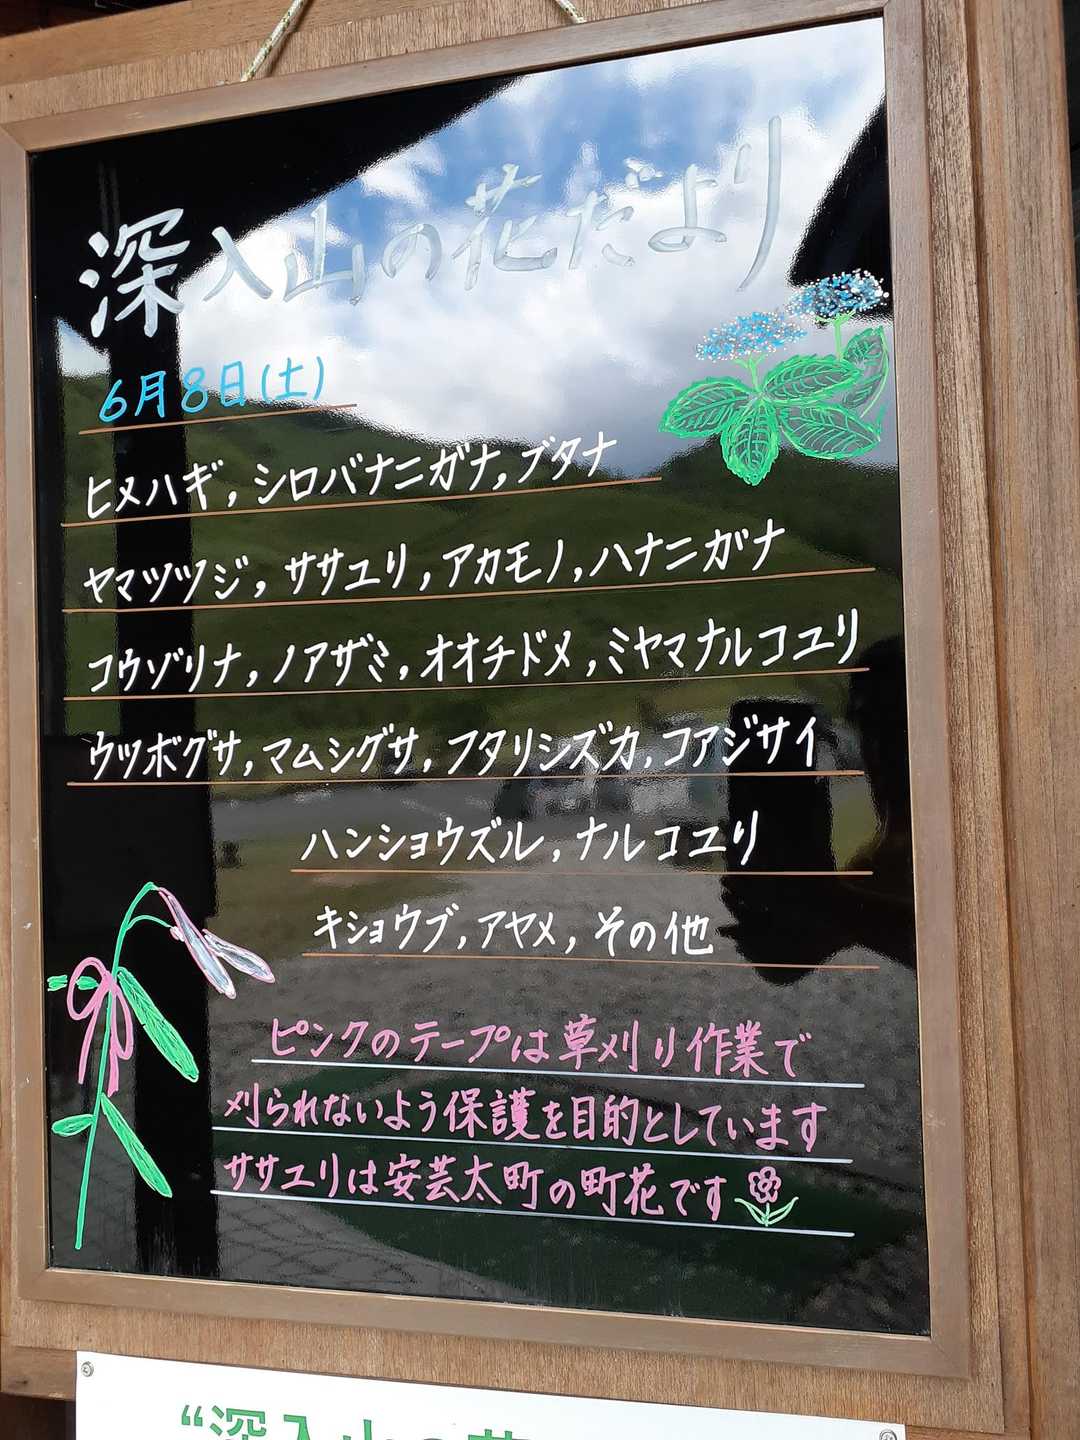 深入山の花だより
6月8日(土)
ヒメハギ,シロバナニガナ,ブタナ
ヤマツツジ,ササユリ,アカモノ,ハナニガナ
コウゾリナ,ノアザミ,オオチドメ,ミヤマナルコユリ
ウツボグサ,マムシグサ,フタリシズカ,コアジサイ
ハンショウズル,ナルコユリ
キショウブ,アヤメ,その他
ピンクのテープは草刈り作業で
刈られないよう保護を目的としています
ササユリは安芸太町の町花です
“深入山の花